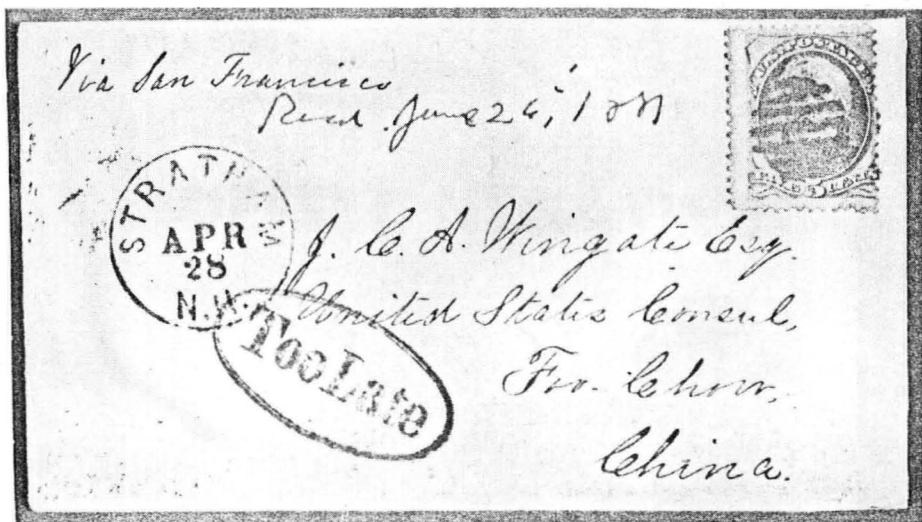 Via San Francisco
Recd. June 26,
STRATHAM
APR
28
N.H.
Too Late
J. C. A. Wingate Esq
United States Consul,
Foo-Chow,
China.